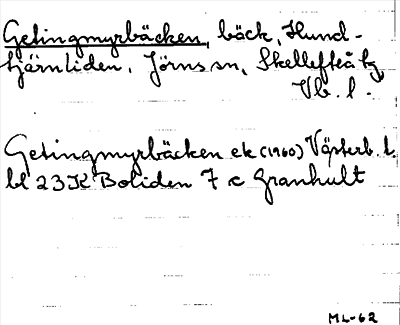 Getingmyrbäcken, bäck, Hund-
tjärnliden, Jörns sn, Skellefteå tg,
Vb. l.
Getingmyrbäcken ek (1960) Västerb. l.
bl 23K Boliden 7 c Granhult
ML-62